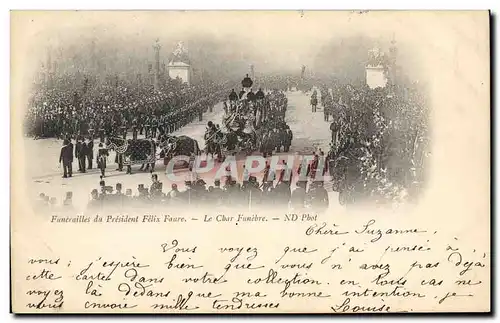 CARPHIL
Funérailles du Président Félix Faure. - Le Char Funèbre. - ND Phot
Chère Suzanne,
Vous voyez que j'ai pensé à
vous ; j'espère bien que vous n'avez pas déjà
cette carte dans votre collection. en tous cas ne
voyez là dedans, que ma bonne intention, je
vous envoie mille tendresses
Louise.